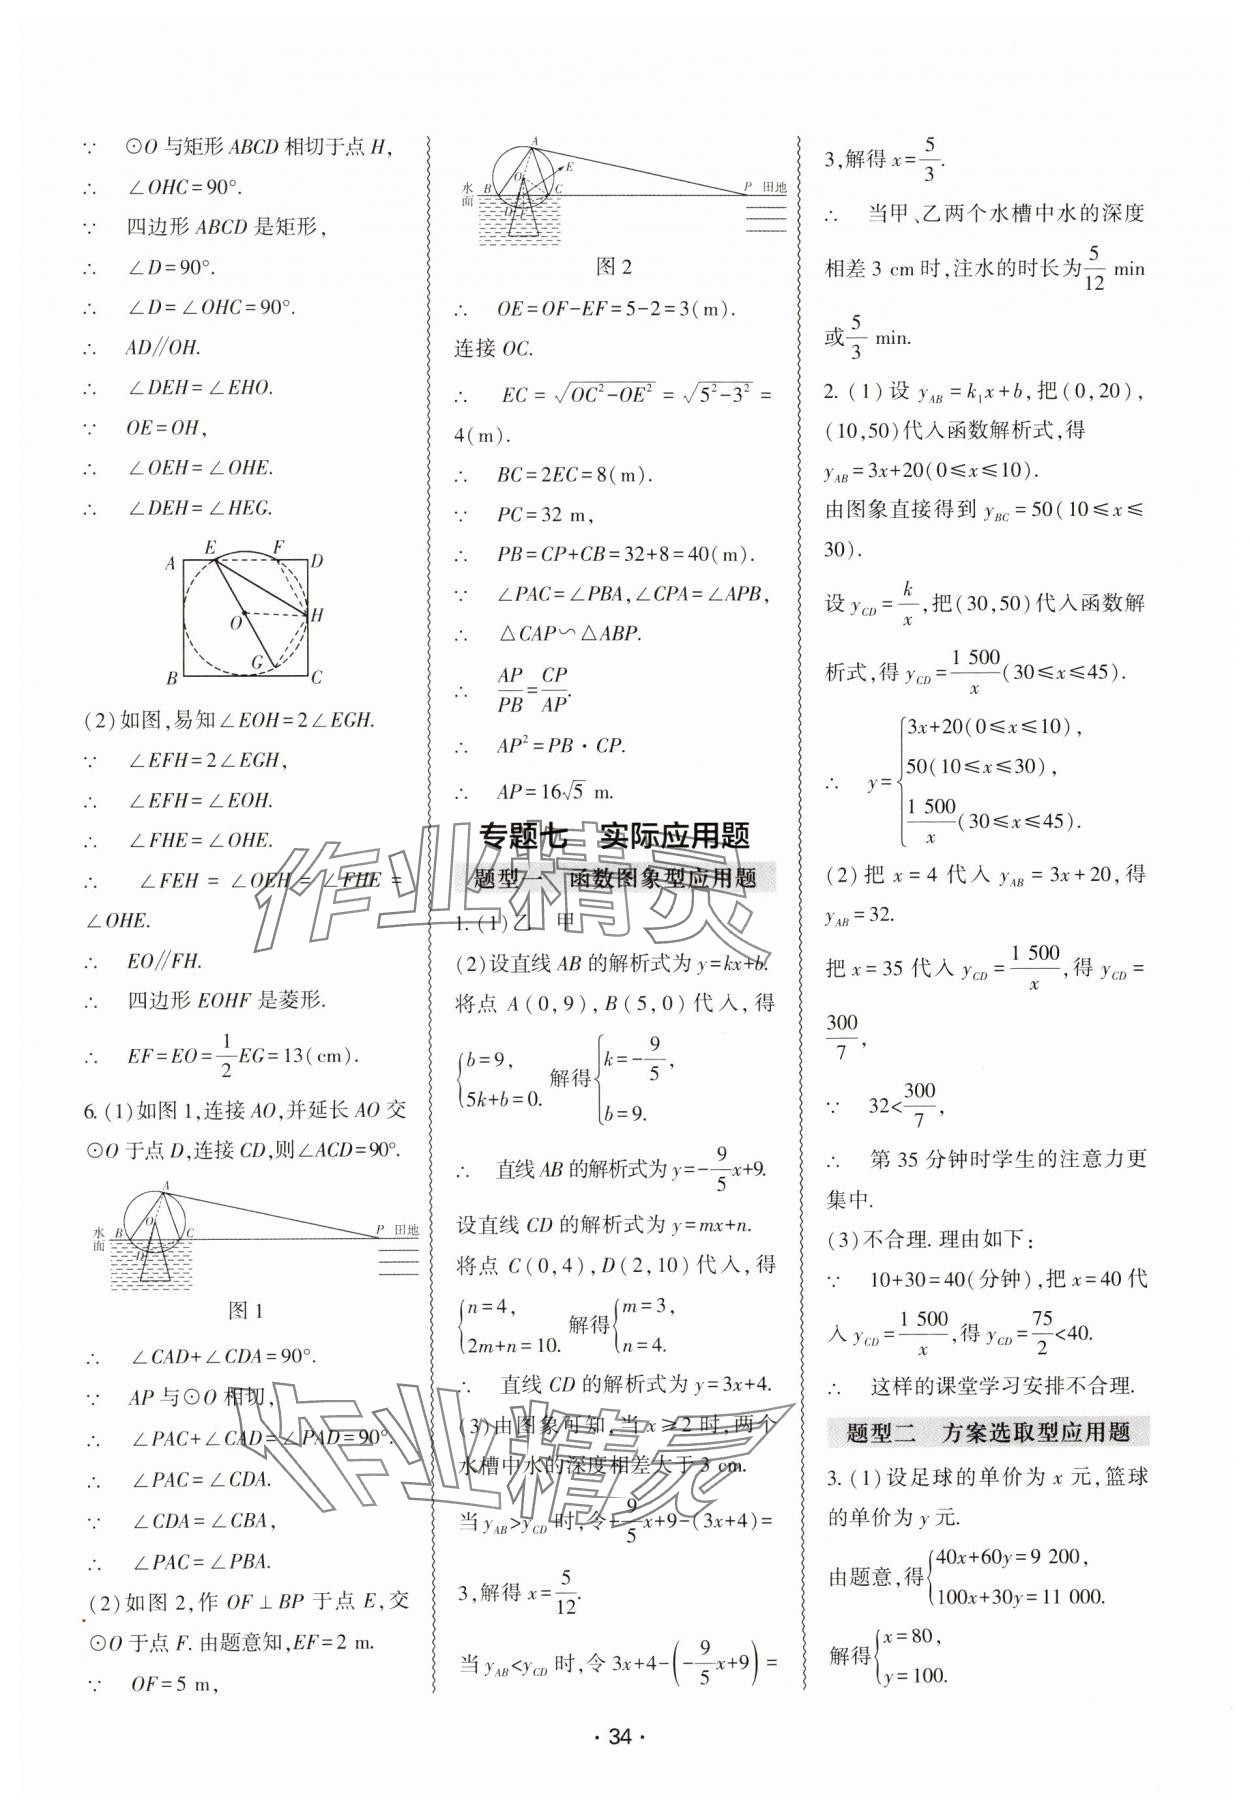 ∵ ⊙O与矩形ABCD相切于点H,
∴ ∠OHC=90°.
∵ 四边形ABCD是矩形,
∴ ∠D=90°.
∴ ∠D=∠OHC=90°.
∴ AD∥OH.
∴ ∠DEH=∠EHO.
∵ OE=OH,
∴ ∠OEH=∠OHE.
∴ ∠DEH=∠HEG.
A E F D
O H
G
B C
(2)如图,易知∠EOH=2∠EGH.
∵ ∠EFH=2∠EGH,
∴ ∠EFH=∠EOH.
∴ ∠FHE=∠OHE.
∴ ∠FEH=∠OEH=∠FHE=
∠OHE.
∴ EO∥FH.
∴ 四边形EOHF是菱形.
∴ EF=EO=1/2EG=13(cm).
6.(1)如图1,连接AO,并延长AO交
⊙O于点D,连接CD,则∠ACD=90°.
A
O
水面 B C P 田地
D
图1
∴ ∠CAD+∠CDA=90°.
∵ AP与⊙O相切,
∴ ∠PAC+∠CAD=∠PAD=90°.
∴ ∠PAC=∠CDA.
∵ ∠CDA=∠CBA,
∴ ∠PAC=∠PBA.
(2)如图2,作OF⊥BP于点E,交
⊙O于点F.由题意知,EF=2 m.
∵ OF=5 m,
A
O E
水面 B C P 田地
D F
图2
∴ OE=OF-EF=5-2=3(m).
连接OC.
∴ EC=√(OC²-OE²)=√(5²-3²)=
4(m).
∴ BC=2EC=8(m).
∵ PC=32 m,
∴ PB=CP+CB=32+8=40(m).
∵ ∠PAC=∠PBA,∠CPA=∠APB,
∴ △CAP∽△ABP.
∴ AP/PB=CP/AP.
∴ AP²=PB·CP.
∴ AP=16√5 m.
专题七 实际应用题
题型一 函数图象型应用题
1.(1)乙 甲
(2)设直线AB的解析式为y=kx+b.
将点A(0,9),B(5,0)代入,得
{b=9, 5k+b=0. 解得{k=-9/5, b=9.
∴ 直线AB的解析式为y=-9/5x+9.
设直线CD的解析式为y=mx+n.
将点C(0,4),D(2,10)代入,得
{n=4, 2m+n=10. 解得{m=3, n=4.
∴ 直线CD的解析式为y=3x+4.
(3)由图象可知,当x≥2时,两个
水槽中水的深度相差大于3 cm.
当y_AB>y_CD时,令-9/5x+9-(3x+4)=
3,解得x=5/12.
当y_AB<y_CD时,令3x+4-(-9/5x+9)=
3,解得x=5/3.
∴ 当甲、乙两个水槽中水的深度
相差3 cm时,注水的时长为5/12 min
或5/3 min.
2.(1)设y_AB=k₁x+b,把(0,20),
(10,50)代入函数解析式,得
y_AB=3x+20(0≤x≤10).
由图象直接得到y_BC=50(10≤x≤
30).
设y_CD=k/x,把(30,50)代入函数解
析式,得y_CD=1 500/x(30≤x≤45).
∴ y={3x+20(0≤x≤10), 50(10≤x≤30), 1 500/x(30≤x≤45).
(2)把x=4代入y_AB=3x+20,得
y_AB=32.
把x=35代入y_CD=1 500/x,得y_CD=
300/7,
∵ 32<300/7,
∴ 第35分钟时学生的注意力更
集中.
(3)不合理.理由如下:
∵ 10+30=40(分钟),把x=40代
入y_CD=1 500/x,得y_CD=75/2<40.
∴ 这样的课堂学习安排不合理.
题型二 方案选取型应用题
3.(1)设足球的单价为x元,篮球
的单价为y元.
由题意,得{40x+60y=9 200, 100x+30y=11 000.
解得{x=80, y=100.
作业精灵
作业精灵
·34·